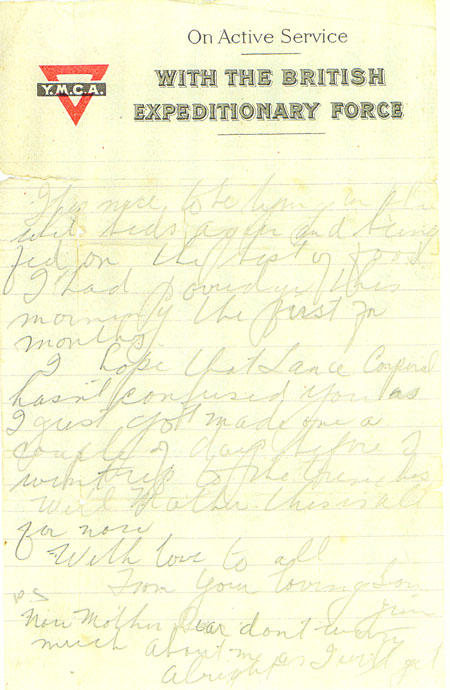 On Active Service
Y.M.C.A.
WITH THE BRITISH
EXPEDITIONARY FORCE
nice to be
beds again and being
fed on the best of food
I had porridge this
morning the first in
months
I hope that Lance Corporal
hasn't confused you as
I just got made one a
couple of days before I
went up to the trenches
Well Mother this is all
for now
With love to all
From Your loving Son
Jim
PS
Now Mother Dear don't worry
much about me as I will get
alright